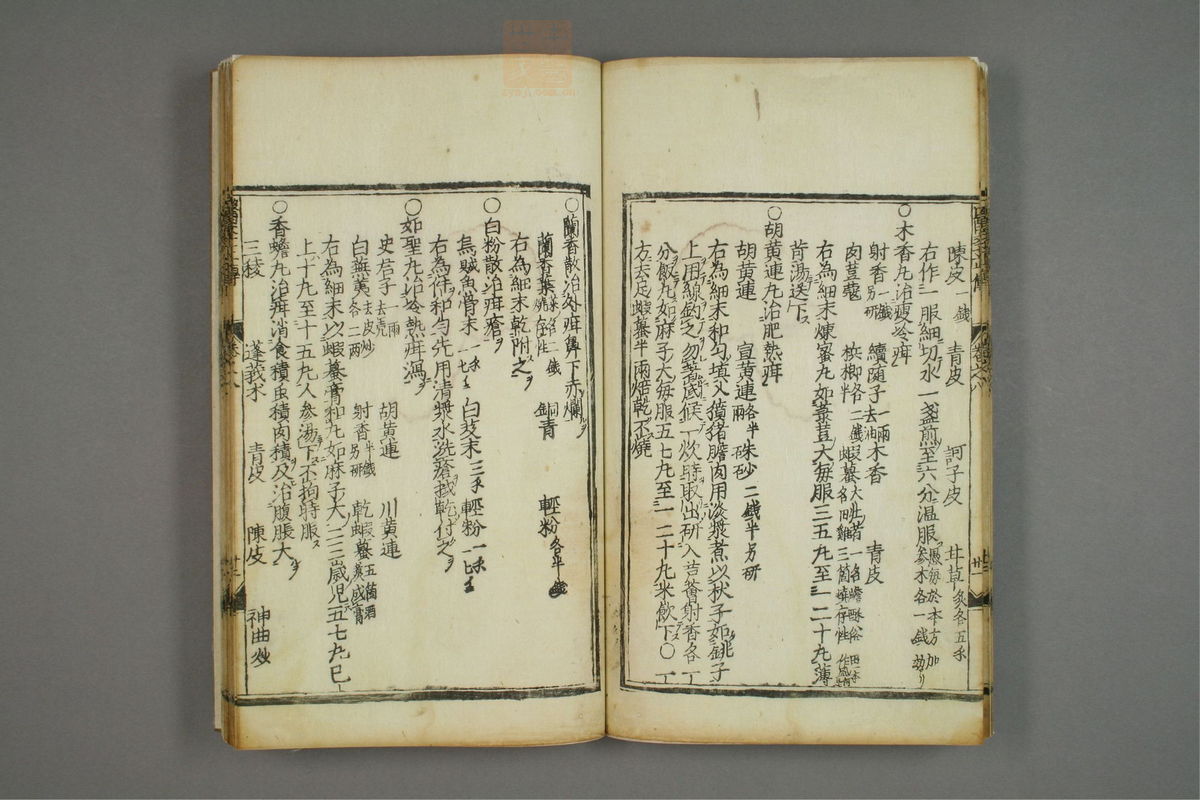 陳皮一錢 青皮 訶子皮 甘草炙各五分
右作一服細切水一盞煎至六分温服
○木香丸治瘦冷疳
射香另研 續隨子一兩去油 木香 青皮
肉荳蔲 梹榔各二錢半 蝦蟇大
右為細末煉蜜丸如菉荳大每服三五丸至一二十丸薄
苛湯送下
○胡黄連丸治肥熱疳
胡黄連 宣黄連各半兩 硃砂二錢半另研
右為細末和匀填入猪膽肉用淡漿煮以杖子如銚子
上用線釣之勿著底候一炊時取出研入芦薈射香各一
分飯丸如麻子大每服五七丸至一二十丸米飲下○一
方去足蝦蟇半兩焙乾不燒
○蘭香散治外疳鼻下赤爛
蘭香葉二錢燒存性 銅青 輕粉各半錢
右為細末乾附之
○白粉散治疳瘡
烏賊魚骨末一分 白芨末三分 輕粉一分
右為件和匀先用清漿水洗瘡拭乾付之
○如聖丸治冷熱疳瀉
史君子一兩去売 胡黄連 川黄連
白蕪荑去皮炒各二兩 射香半錢另研 乾蝦蟇五箇酒熬成膏
右為細末以蝦蟇膏和丸如麻子大二三歳児五七丸已
上十丸至十五丸人参湯下不拘時服
○香蟾丸治疳消食積虫積肉積及治腹脹大
三棱 蓬莪朮 青皮 陳皮 神曲炒